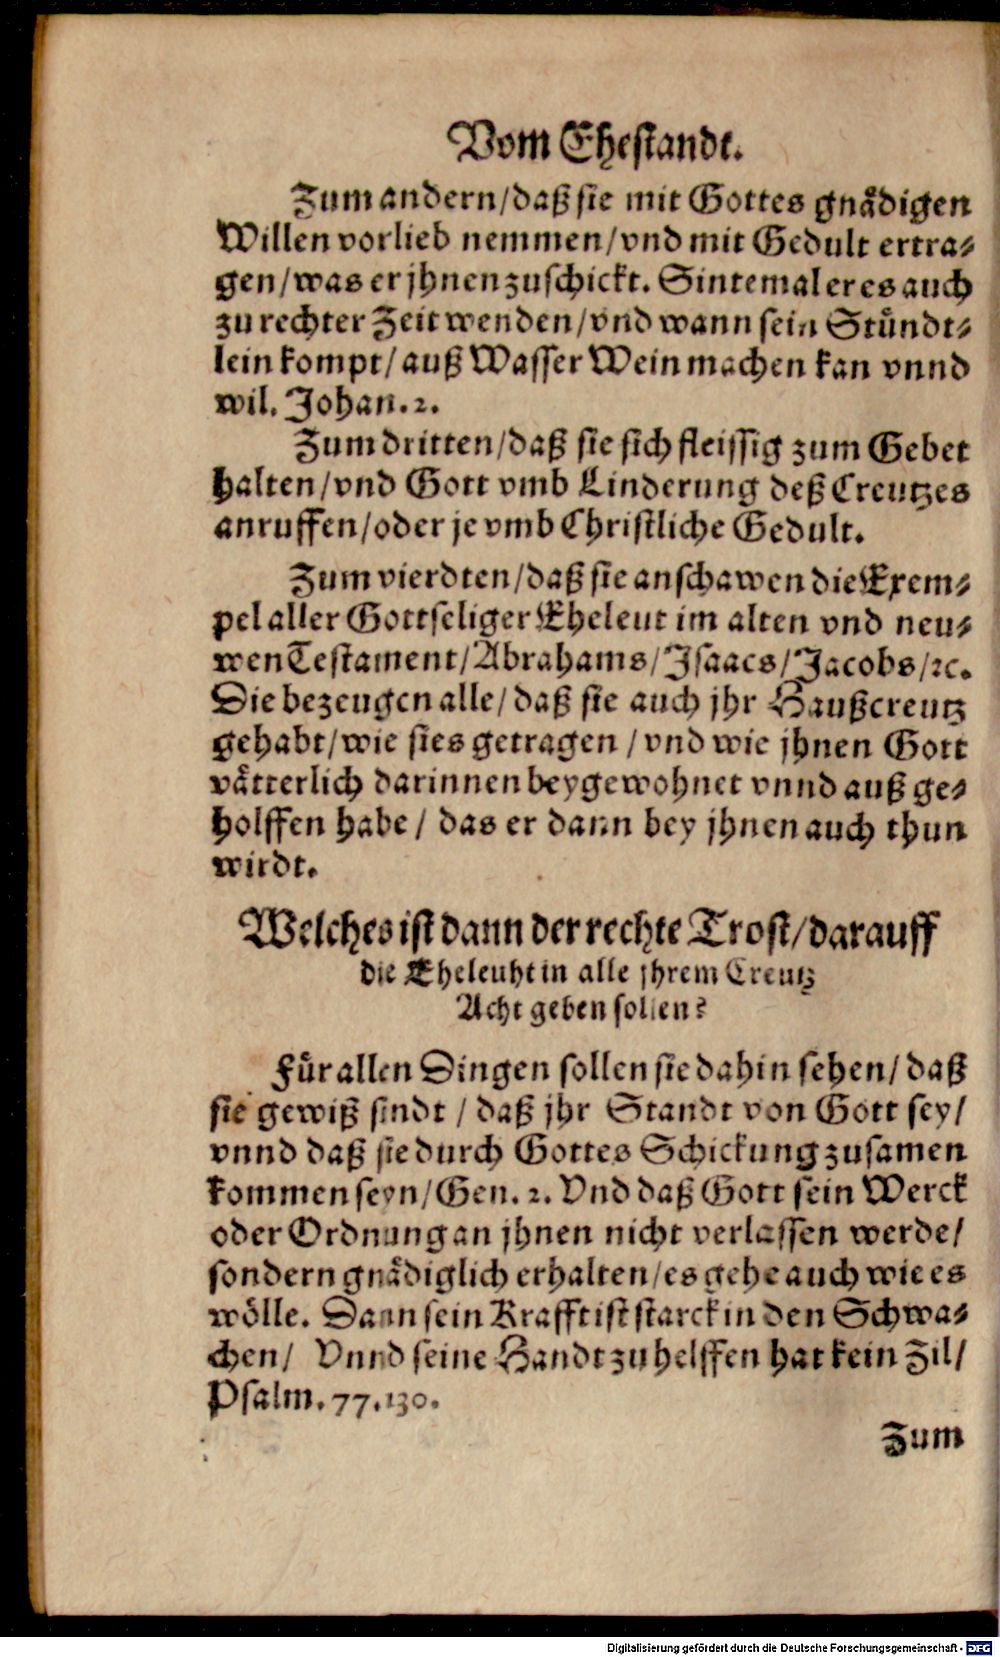 Vom Ehestandt.
Zum andern/daß sie mit Gottes gnådigen
Willen vorlieb nemmen/vnd mit Gedult ertra-
gen/was er jhnen zuschickt. Sintemal er es auch
zu rechter Zeit wenden/vnd wann sein Stůndt-
lein kompt/auß Wasser Wein machen kan vnnd
wil. Johan. 2.
Zum dritten/daß sie sich fleissig zum Gebet
halten/vnd Gott vmb Linderung deß Creutzes
anruffen/oder je vmb Christliche Gedult.
Zum vierdten/daß sie anschawen die Exem-
pel aller Gottseliger Eheleut im alten vnd neu-
wen Testament/Abrahams/Isaacs/Jacobs/ꝛc.
Die bezeugen alle/daß sie auch jhr Haußcreutz
gehabt/wie sies getragen/vnd wie jhnen Gott
våtterlich darinnen beygewohnet vnnd auß ge-
holffen habe/ das er dann bey jhnen auch thun
wirdt.
Welches ist dann der rechte Trost/darauff
die Eheleuht in alle jhrem Creutz
Acht geben sollen?
Fůr allen Dingen sollen sie dahin sehen/daß
sie gewiß sindt/daß jhr Standt von Gott sey/
vnnd daß sie durch Gottes Schickung zusamen
kommen seyn/Gen. 2. Vnd daß Gott sein Werck
oder Ordnung an jhnen nicht verlassen werde/
sondern gnådiglich erhalten/es gehe auch wie es
wölle. Dann sein Krafft ist starck in den Schwa-
chen/ Vnnd seine Handt zu helffen hat kein Zil/
Psalm. 77. 130.
Zum
Digitalisierung gefördert durch die Deutsche Forschungsgemeinschaft - DFG